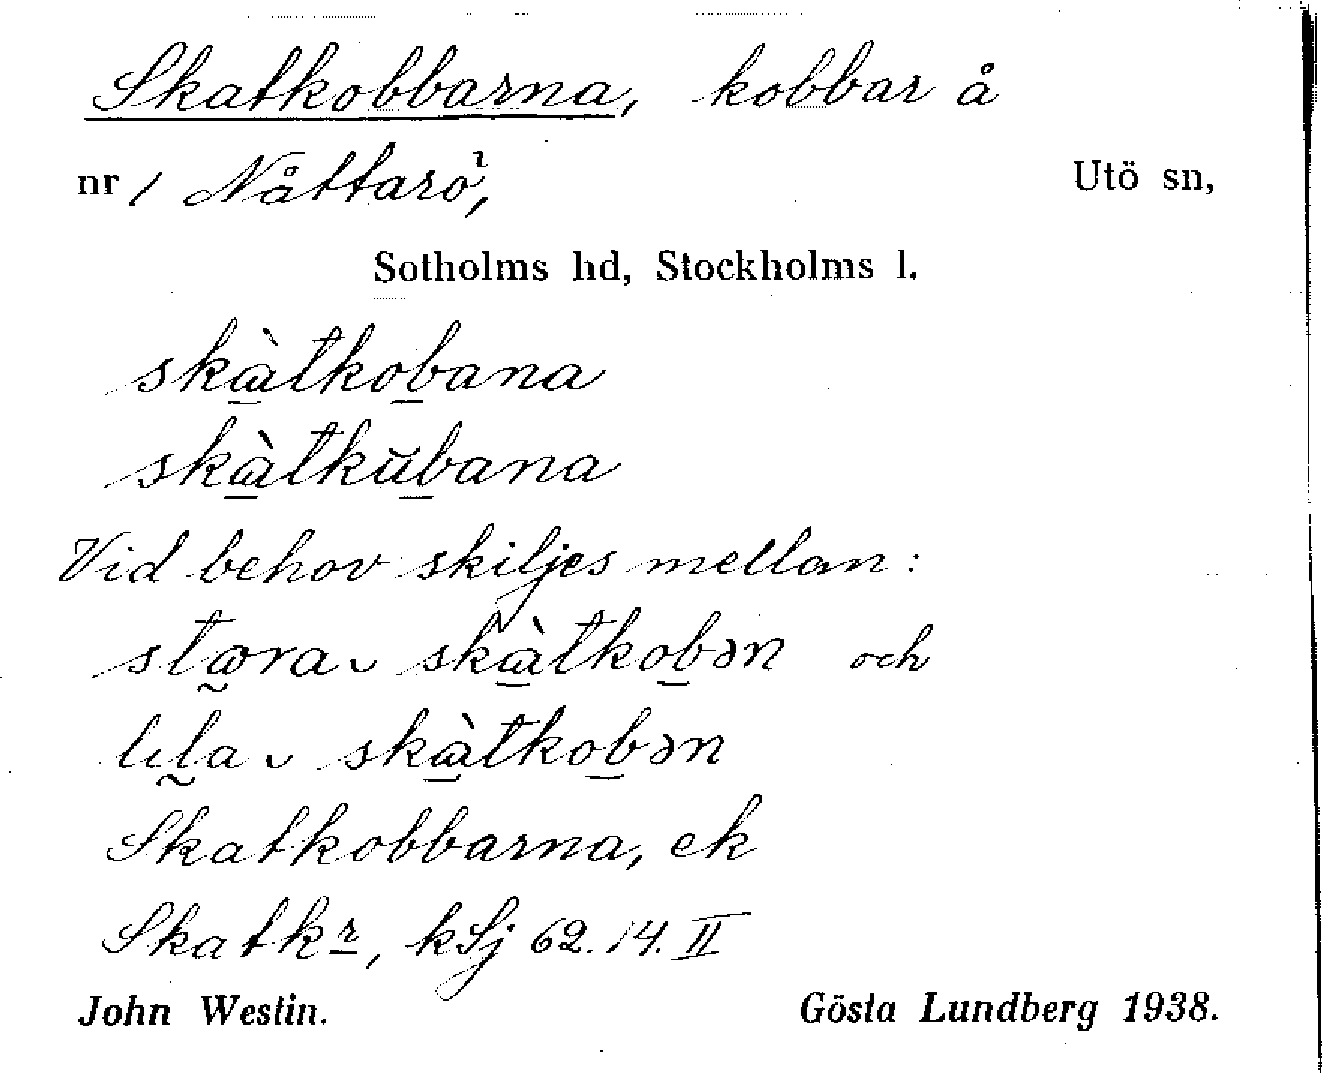 Skatkobbarna, kobbar å
nr 1 Nåttarö, Utö sn,
Sotholms hd, Stockholms l.
skàtkobana
skàtkŭbana
Vid behov skiljes mellan:
stωra ᴗ skàtkobən och
lıla ᴗ skàtkobən
Skatkobbarna, ek
Skatkr, kSj 62.14.II
John Westin. Gösta Lundberg 1938.